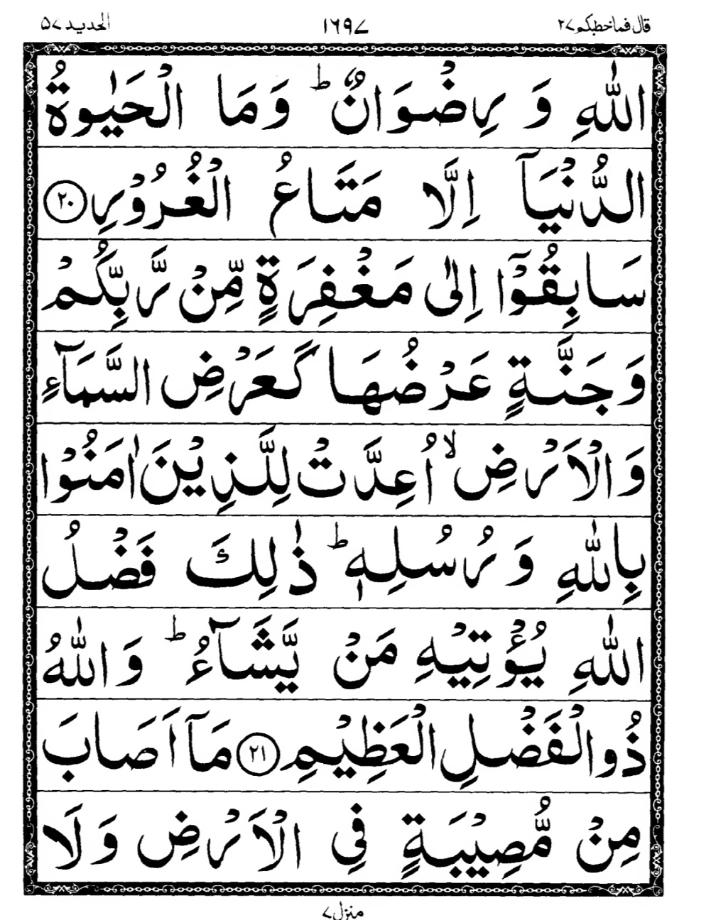 قال فما خطبكم ٢٧ ١٦٩٧ الحديد ٥٧
اللّٰهِ وَ رِضْوَانٌ ؕ وَمَا الْحَيٰوةُ
الدُّنْيَاۤ اِلَّا مَتَاعُ الْغُرُوْرِ ﴿٢٠﴾
سَابِقُوْۤا اِلٰى مَغْفِرَةٍ مِّنْ رَّبِّكُمْ
وَجَنَّةٍ عَرْضُهَا كَعَرْضِ السَّمَآءِ
وَالْاَرْضِ ۙ اُعِدَّتْ لِلَّذِيْنَ اٰمَنُوْا
بِاللّٰهِ وَ رُسُلِهٖ ؕ ذٰلِكَ فَضْلُ
اللّٰهِ يُؤْتِيْهِ مَنْ يَّشَآءُ ؕ وَاللّٰهُ
ذُوالْفَضْلِ الْعَظِيْمِ ﴿٢١﴾ مَاۤ اَصَابَ
مِنْ مُّصِيْبَةٍ فِي الْاَرْضِ وَلَا
منزل ٧